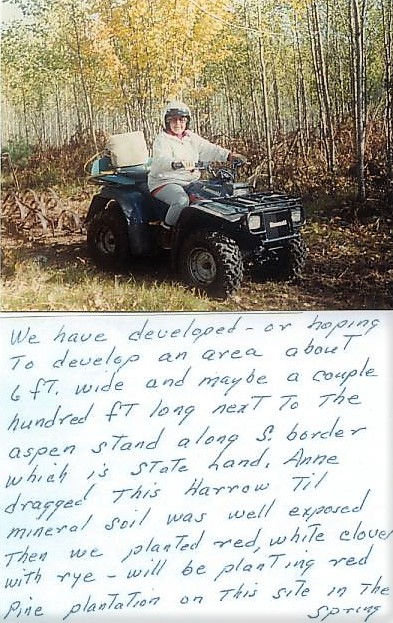 We have developed - or hoping
To develop an area about
6 fT. wide and maybe a couple
hundred fT long next To The
aspen stand along S. border
which is State land. Anne
dragged This Harrow Til
mineral soil was well exposed
Then we planted red, white clover
with rye - will be planting red
Pine plantation on This site in The
Spring